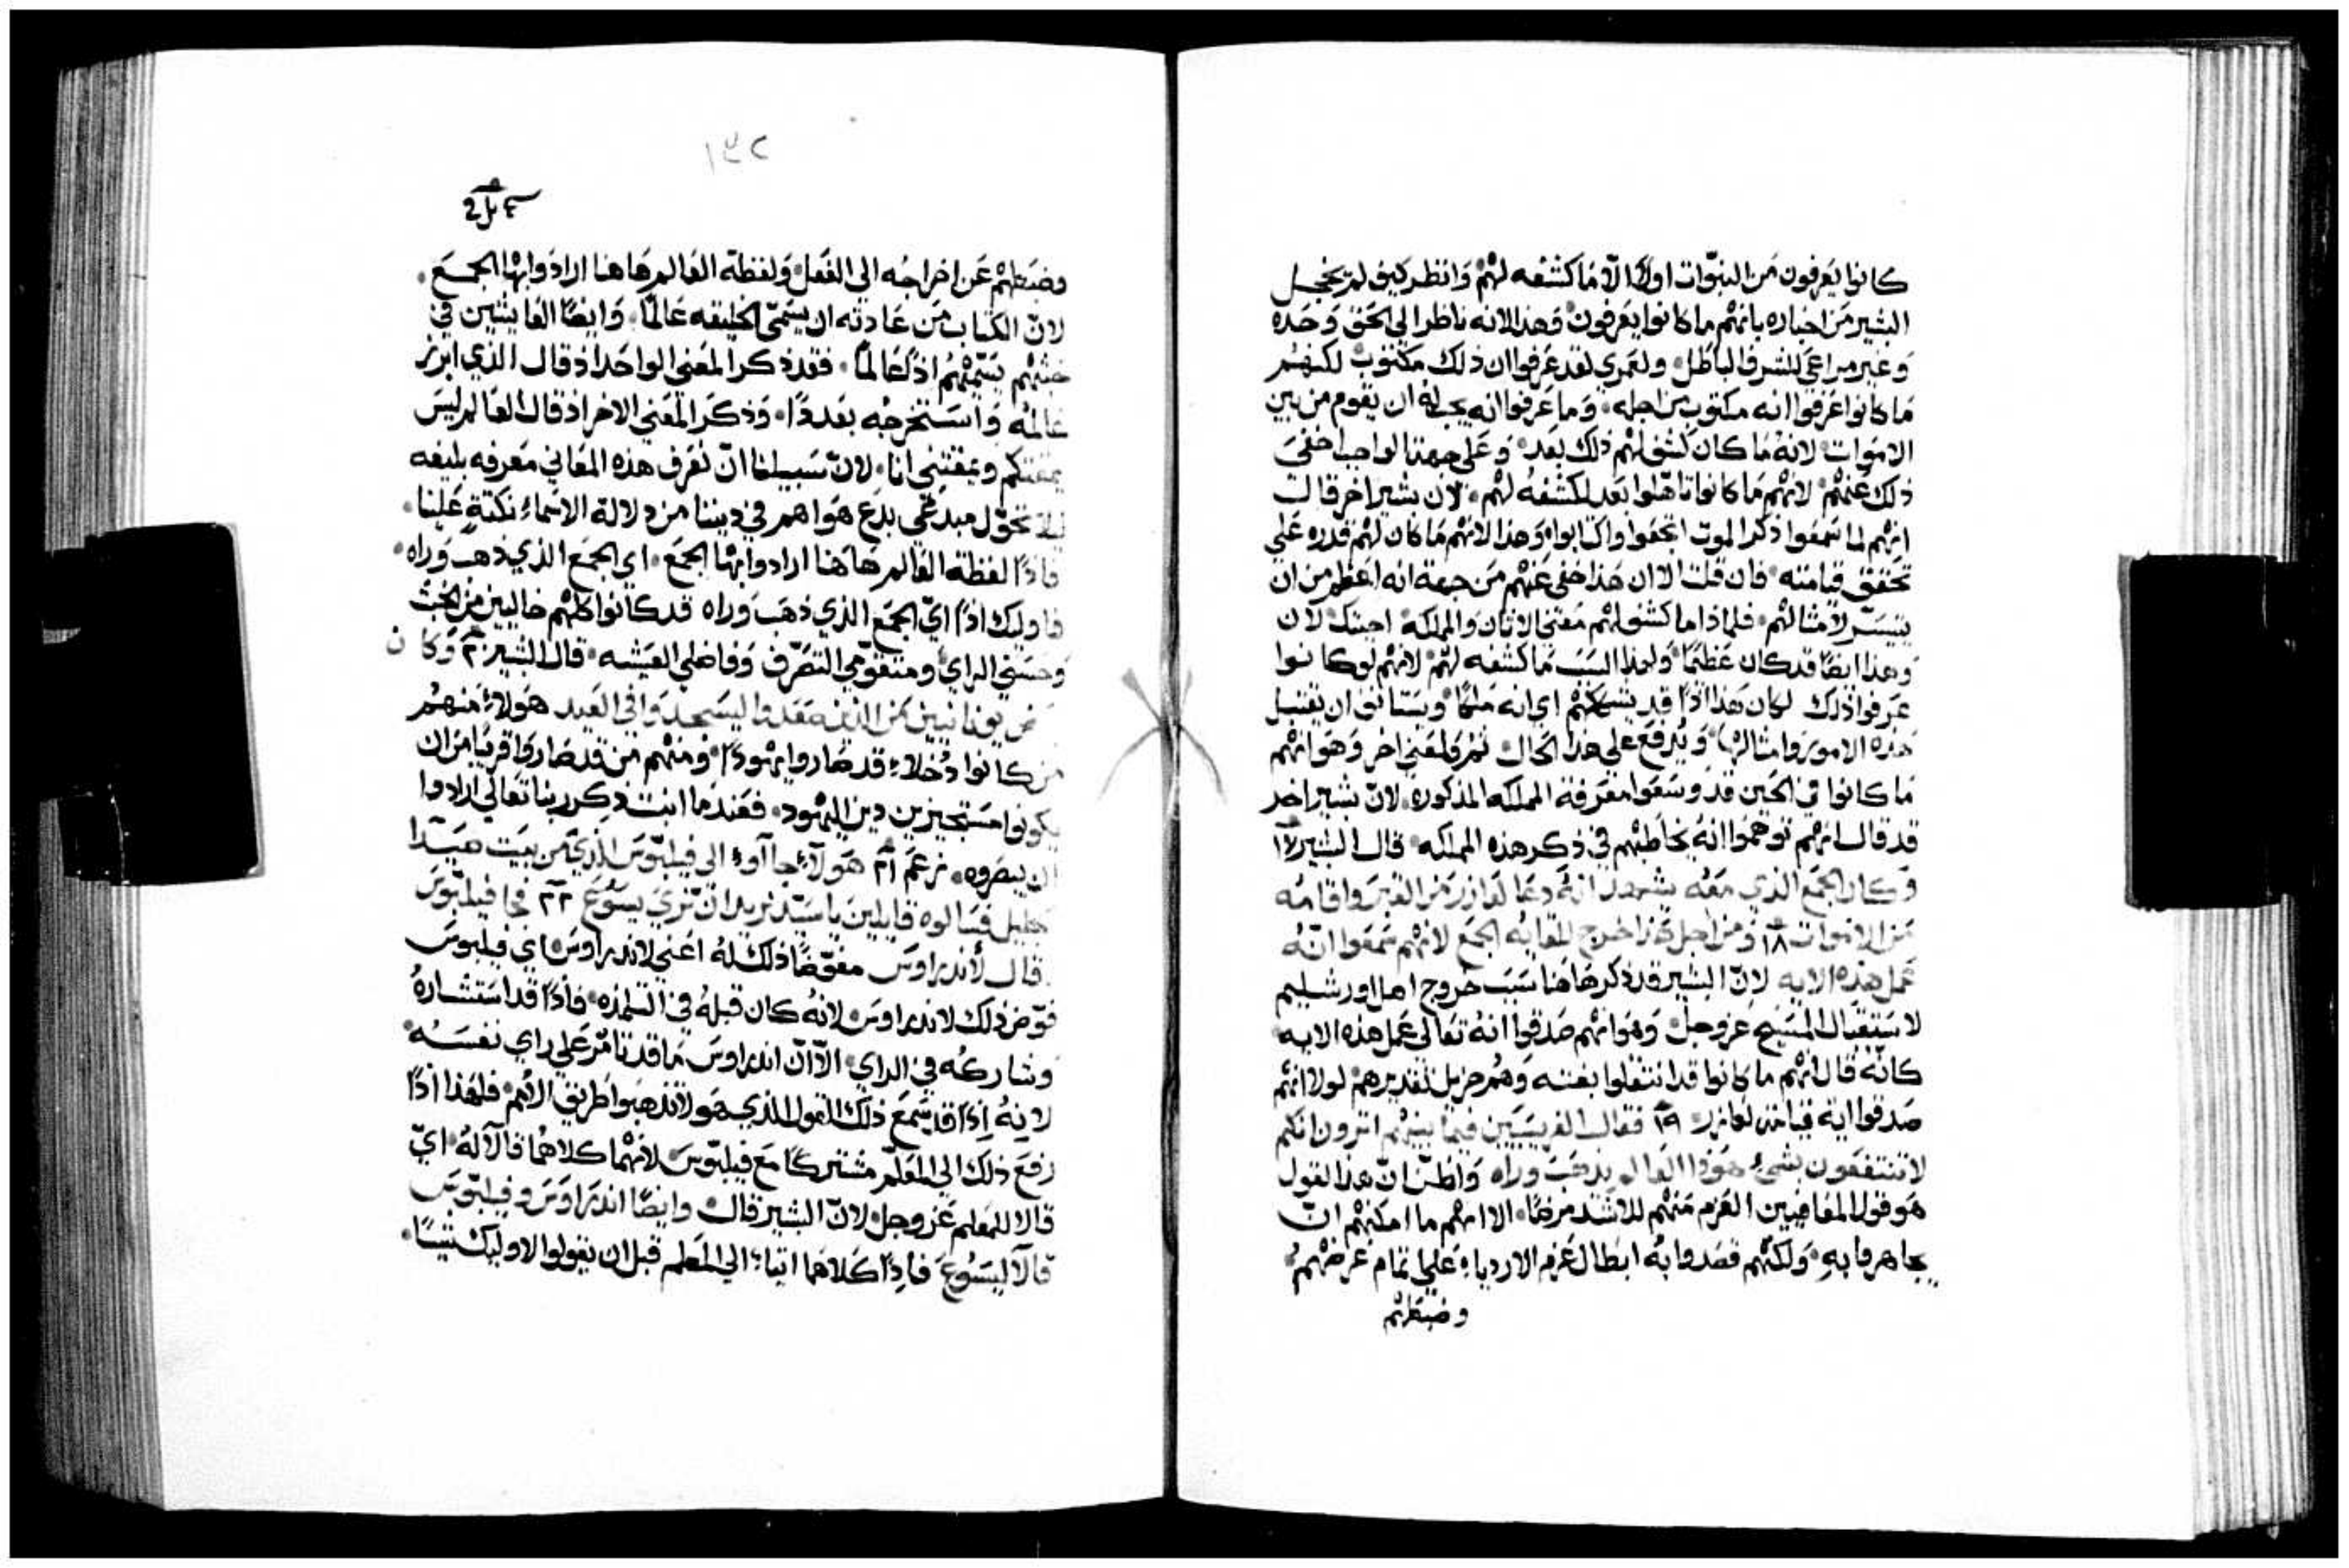 كانوا يعرفون من النبوّات اولاً الاّ ما كشفه لهم وانظر كيف لم يخجل
البشير من اخباره بانهم ما كانوا يعرفون وهذا لانه ناظر الى الحق وحده
وغير مراعي للشرف الباطل ولعمري لقد عرفوا ان ذلك مكتوب لكنهم
ما كانوا عرفوا انه مكتوب من اجله وما عرفوا انه يجب له ان يقوم من بين
الاموات لانه ما كان كشف لهم ذلك بعد وعلى جهة الواجب اخفى
ذلك عنهم لانهم ما كانوا تاهلوا بعد لكشفه لهم لان بشير اخر قال
انهم لما سمعوا ذكر الموت اتجعوا واكتابوا وهذا لانهم ما كان لهم قدره على
تحقق قيامته فان قلت الا ان هذا خفي عنهم من جهة انه اعظم من ان
يتيسّر لامثالهم فلماذا ما كشف لهم معنى الاتان والمملكة اجبتك لان
وهذا ايضًا قد كان عظيمًا ولهذا السبب ما كشفه لهم لانهم لو كانوا
عرفوا ذلك لكان هذا اذًا قد يشككهم اي انه ملكًا ويستانف ان يقتبل
هذه الامور وامثالها ويرفع على هذا الحال ثم ولمعنى اخر وهو انهم
ما كانوا في الحين قد وسعوا معرفة المملكه المذكورة لانّ بشير اخر
قد قال انهم توهموا انه يخاطبهم في ذكر هذه المملكه قال البشير ١٧
وكان الجمع الذي معه يشهد انه دعا لعازر من القبر واقامه
من الاموات ١٨ ومن اجل هذا خرج للقايه الجمع لانهم سمعوا انّه
عمل هذه الايه لانّ البشير قد ذكر هاهنا سبب خروج اهل اورشليم
لاستقبال المسيح عز وجل وهو انهم صدقوا انه تعالى عمل هذه الايه
كانّه قال انهم ما كانوا قد انتقلوا بغته وهم جزيل تقديرهم لولا انهم
صدقوا اية قيامة لعازر ١٩ فقال الفريسيين فيما بينهم اترون انكم
لا تنتفعون بشيء هوذا العالم يذهب وراه واظنّ انّ هذا القول
هو قول المعافيين العزم منهم للاشد مرضًا الا انهم ما امكنهم انّ
يجاهروا به ولكنهم قصدوا به ابطال عزم الاردياء على تمام غرضهم
وضبطهم
١٣٢
وضبطهم عن اخراجه الى الفعل ولفظة العالم هاهنا ارادوا بها الجمع
لانّ الكتاب من عادته ان يسمّي الخليقه عالمًا وايضًا العايشين في
خبثهم يسمّيهم اذًا عالمًا فقد ذكر المعنى الواحد اذ قال الذي ابرز
عالمه واستخرجه بعددًا وذكر المعنى الاخر اذ قال العالم ليس
يمقتكم ويمقتني انا لانّ سبيلنا انّ نعرف هذه المعاني معرفه بليغه
ليلا تحوّل مبدعي بدع هواهم في ديننا من دلالة الاسماء نكتةٍ علينا
فاذًا لفظة العالم هاهنا ارادوا بها الجمع اي الجمع الذي ذهب وراه
فاوليك اذًا ايّ الجمع الذي ذهب وراه قد كانوا كلهم خاليين من الخبث
وحسني الراي ومتقوّمي التصرّف وفاضلي العيشه قال البشير ٢٠ وكان
يونانيين من الذين صعدوا ليسجدوا في العيد هولاء منهم
من كانوا دُخلاء قد صاروا يهودًا ومنهم من قد صاروا قريبًا من ان
يكونوا مستجيزين دين اليهود فعندما انبث ذكر ربنا تعالى ارادوا
ان يبصروه زعم ٢١ هولاء جا آوا الى فيلبّوس الذي من بيت صيدا
الجليل فسالوه قايلين يا سيّد نريد ان نرى يسوع ٢٢ فجا فيلبّوس
وقال لأندراوس مفوّضًا ذلك له اعني لاندراوس اي فيلبوس
فوّض ذلك لاندراوس لانه كان قبله في التلمذه فاذًا قد استشاره
وشاركه في الراي الاّ انّ اندراوس ما قد تامّر على راي نفسه
لانه اذًا قد سمع ذلك القول الذي هو لا تذهبوا طريق الامم فلهذا اذًا
رفع ذلك الى المعلّم مشتركًا مع فيلبّوس لانهما كلاهما قالا له ايّ
قالا للمعلم عز وجل لانّ البشير قال وايضًا اندراوس وفيلبّوس
قالا ليسوع فاذًا كلاهما اتياء الى المعلم قبل ان يقولوا لاوليك شيًا